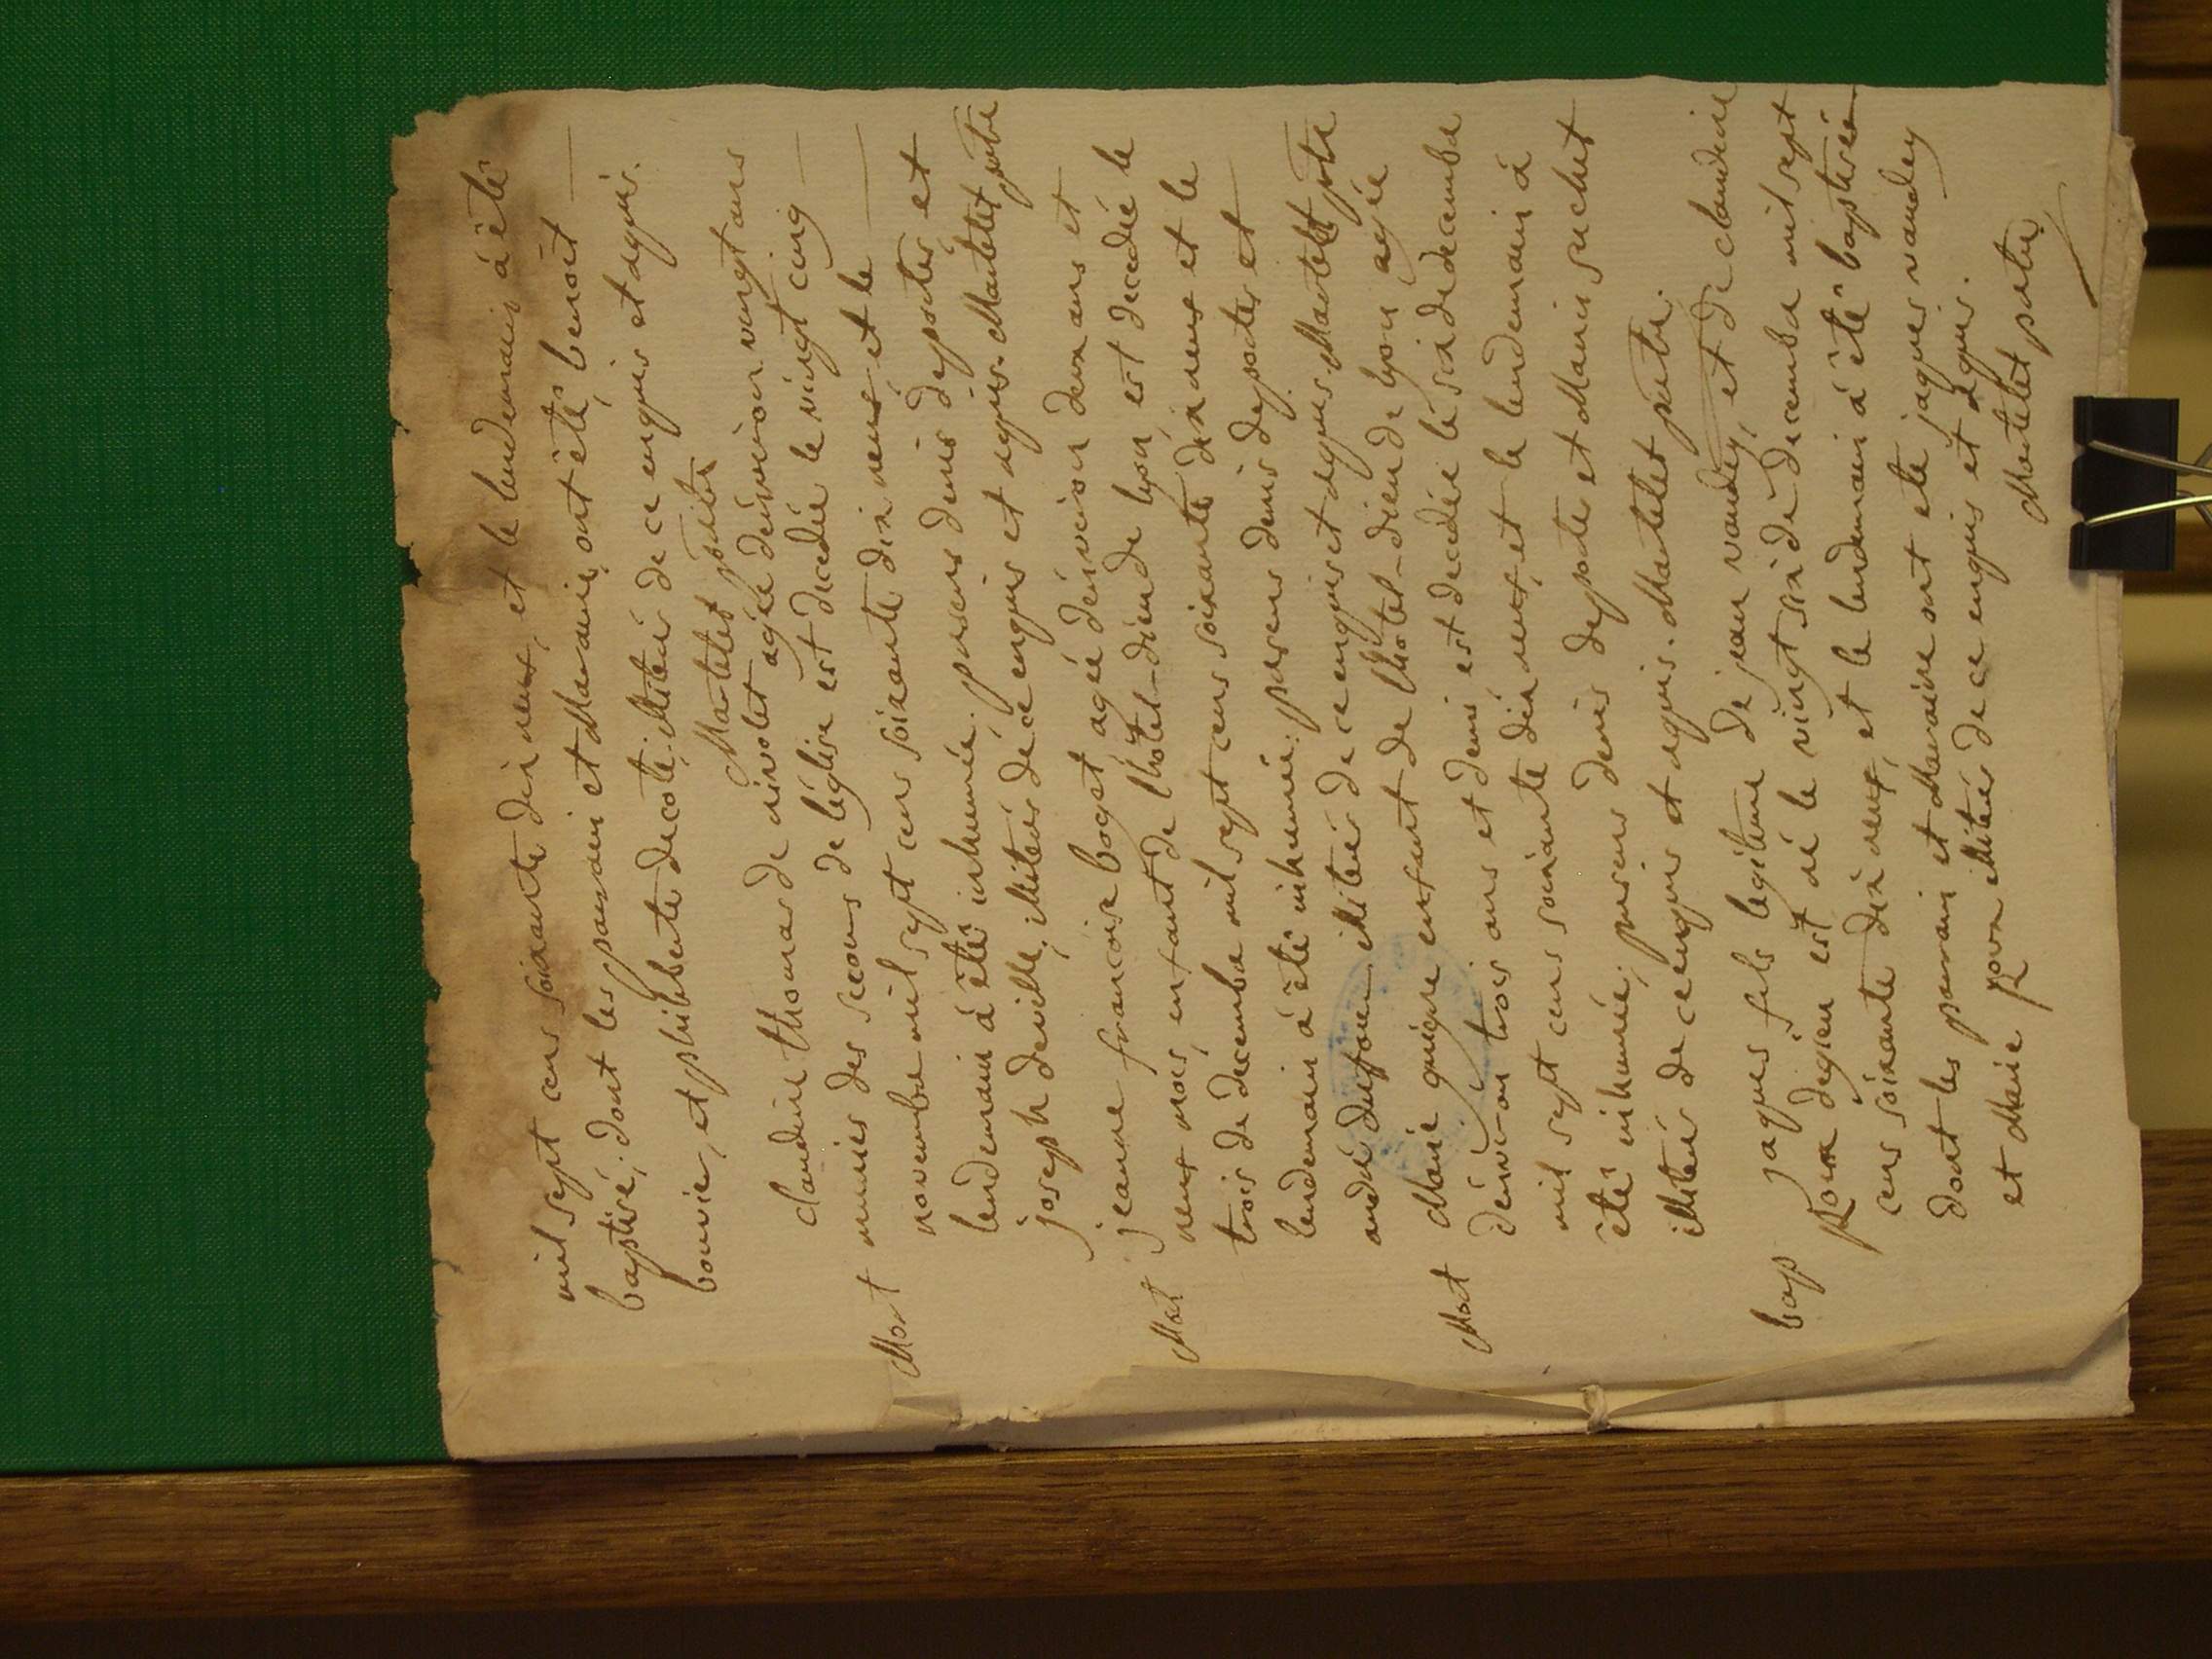 mil sept cens soixante dix neuf, et le lendemain à été
baptisé, dont les parrain et Marraine, ont été, benoit
bouvier, et philiberte decote, illiteré de ce enquis et aquis.
Martelet prêtre
claudine thomas de rivolet agée d'environ vingt ans
Mort munie des secours de l'église est decedée le vingt cinq
novembre mil sept cens soixante dix neuf, et le
lendemain à été inhumée, presens denis deporter et
joseph deville, illiterés de ce enquis et aquis. Martelet prtre
jeanne francoise boget agée d'environ deux ans et
Mort neuf mois, enfant de l'hotel-dieu de lyon, est decedée le
trois de decembre mil sept cens soixante dix neuf et le
lendemain à été inhumée, presens denis deporter et
andré dufour illiteré de ce enquis et aquis. Martelet prtre
Marie enfant de l'hotel-dieu de lyon agée
Mort d'environ trois ans et demi est decedée le six de decembre
mil sept cens soixante dix neuf, et le lendemain à
été inhumée, presens denis deporte et Marin suchet
illiteré de ce enquis et aquis. Martelet prêtre.
jaques fils legitime de jean vaudey, et de claudine
bap Roux est né le vingt six de decembre mil sept
cens soixante dix neuf, et le lendemain à été baptisé
dont les parrain et Marraine ont eté jaques vaudey
et Marie Roux illiterés de ce enquis et aquis.
Martelet prêtre